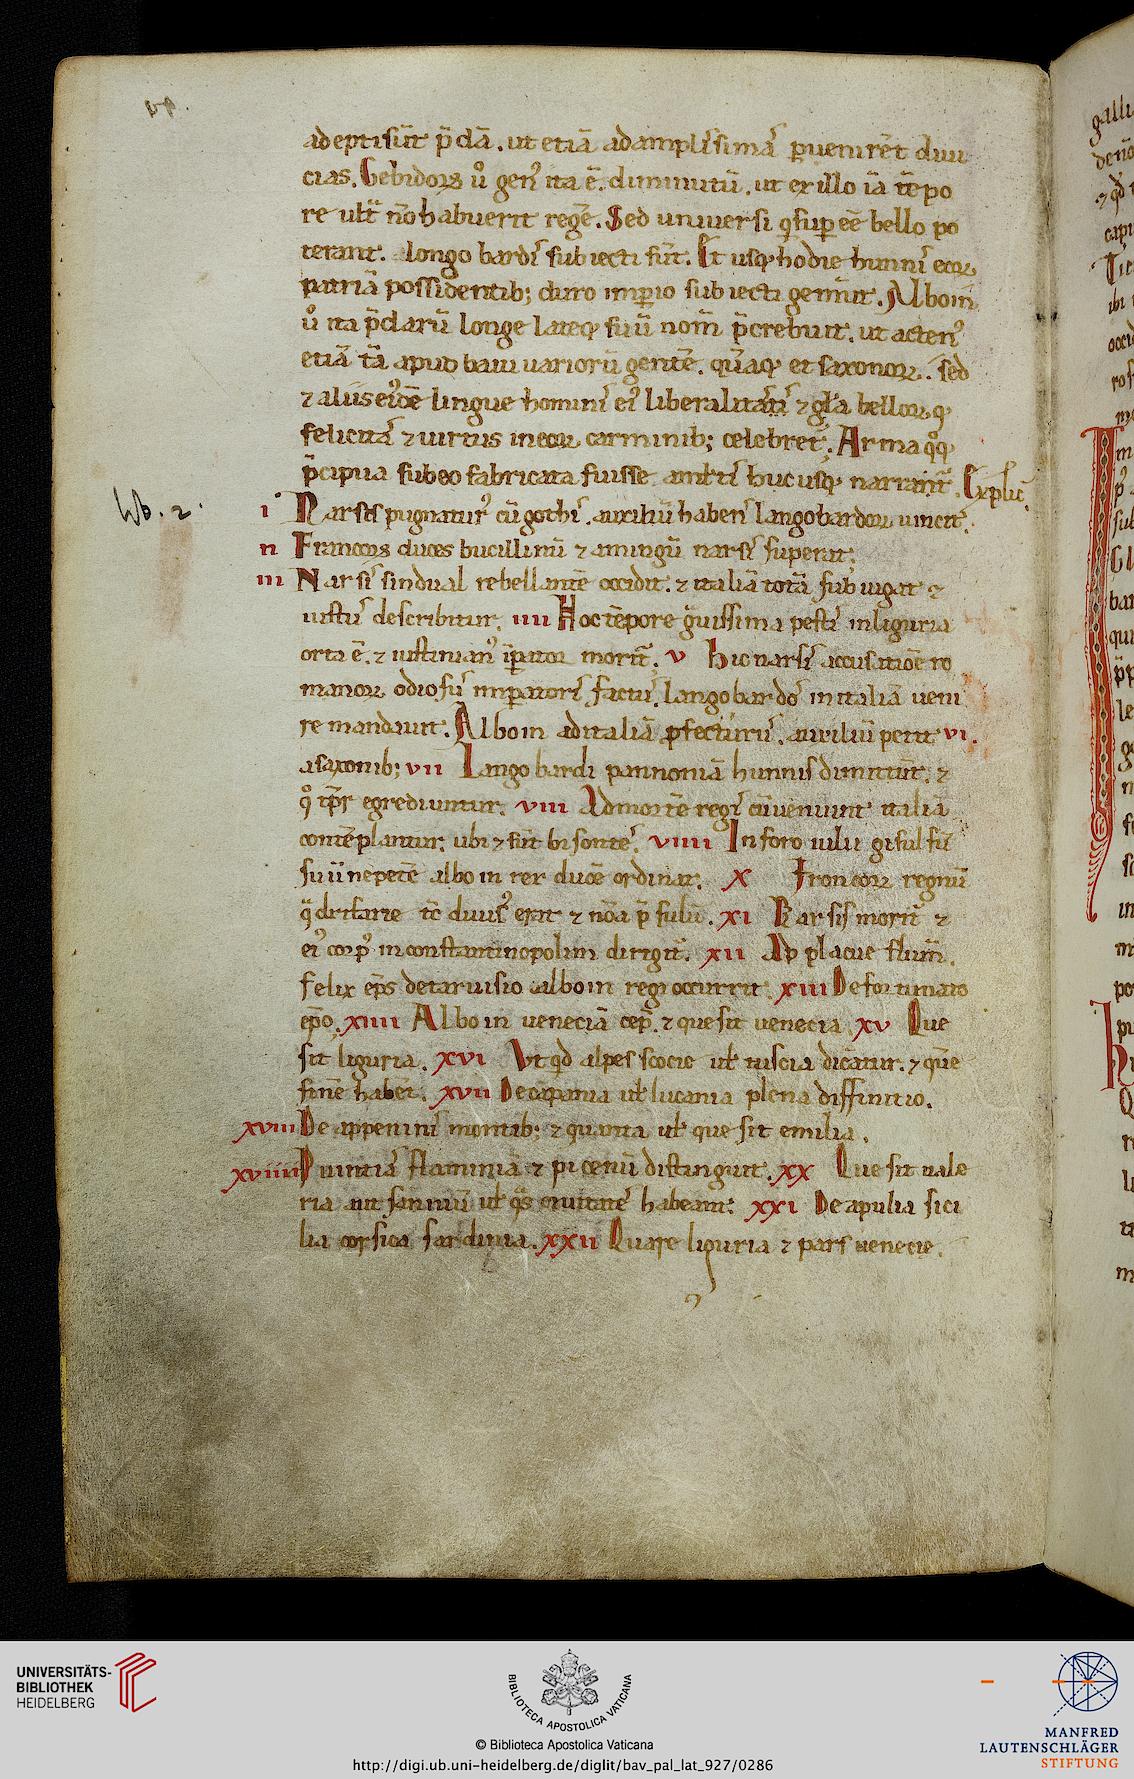 adepti sūt p̄dā. ut etiā ad amplisimā ꝑuenirēt diui
cias. Gebidoꝝ ů genꝰ ita ē diminutū. ut ex illo iā tēpo
re ult̄ nō habuerit regē. Sed uniuersi q̓ suꝑ eē bello po
terant. longobardis subiecti sūt. Et usqꝫ hodie hunnis eoꝝ
patriā possidentibꝫ duro imꝑio subiecti gemūt. Alboin
ů ita p̄clarū longe lateqꝫ suū nom̄ p̄crebuit. ut actenꝰ
etiā tā apud baiuuarioꝝ gentē. quāqꝫ et saxonoꝝ. sed
⁊ aliis eiꝰdē lingue hominiꝰ eiꝰ liberalitas ⁊ gła belloꝝqꝫ
felicitas ⁊ uirtus in eoꝝ carminibꝫ celebret᷑. Arma qͦqꝫ
p̄cipua sub eo fabricata fuisse a mltis hucusqꝫ narrant᷑. Explic̄
lib. 2.
i Narsis pugnaturꝰ cū gothis. auxiliū habens langobardoꝝ uincit.
ii Francoꝝ duces bucillinū ⁊ amingū narsis superat.
iii Narsis sindual rebellantē occidit. ⁊ italiā totā subiugat ⁊
iustus describitur. iiii Hoc tēpore g̊uissima pestis in liguria
orta ē. ⁊ iustinianꝰ īꝑator morit᷑. v Hic narsis accusatiōe ro
manoꝝ odiosus imꝑatoris factus. langobardos in italiā ueni
re mandauit. Alboin ad italiā ꝓfecturus. auxiliū petit vi.
a saxonibꝫ vii Langobardi pannoniā hunnis dimittūt. ⁊
q̊ tp̄r egrediuntur. viii Ad montē regis cū ueniunt italiā
contēplantur. ubi ⁊ sūt bisontes. viiii In foro iulii gisulfū
suū nepotē alboin rex ducē ordinat. x Francoꝝ regnū
q̄drifarie tc̄ diuisꝰ erat ⁊ nōa p̄sulū. xi Narsis morit᷑ ⁊
eiꝰ corpꝰ in constantinopolim dirigit᷑. xii Ap placue flum̄.
felix ep̄s de taruisio alboin regi occurrit. xiii De fortunato
ep̄o. xiiii Alboin ueneciā cep̄. ⁊ que sit uenecia xv Que
sit liguria. xvi Vt qd̄ alpes scocie uł tuscia dicātur. ⁊ quē
finē habet. xvii De cāpania uł lucania plena diffinitio.
xviii De appeninis montibꝫ ⁊ quanta uł que sit emilia.
xviiii Puintiā flaminiā ⁊ picenū distinguit. xx Que sit uale
ria aut samniū uł qͣs ciuitates habeant. xxi De apulia sici
lia corsica sardinia. xxii Quare liguria ⁊ pars uenecie.
UNIVERSITÄTS-
BIBLIOTHEK
HEIDELBERG
BIBLIOTECA APOSTOLICA VATICANA
© Biblioteca Apostolica Vaticana
http://digi.ub.uni-heidelberg.de/diglit/bav_pal_lat_927/0286
MANFRED
LAUTENSCHLÄGER
STIFTUNG